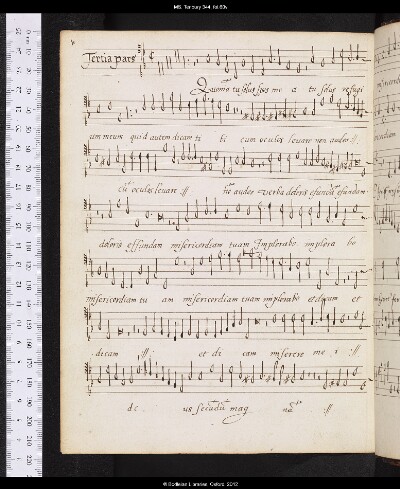 MS. Tenbury 344, fol.60v
Tertia pars
Quoniā tu solus deus meus a tu solus refugi
um meum quid autem dicam ti bi cum oculos levare non audeo :||:
cū oculos levare :||: nō audeo verba doloris effundā effundam
doloris effundam misericordiam tuam Implorabo implora bo
misericordiam tu am misericordiam tuam implorabo et dicam et
dicam :||: et di cam miserere me i :||:
de us secūdū mag nā :||:
© Bodleian Libraries, Oxford, 2012